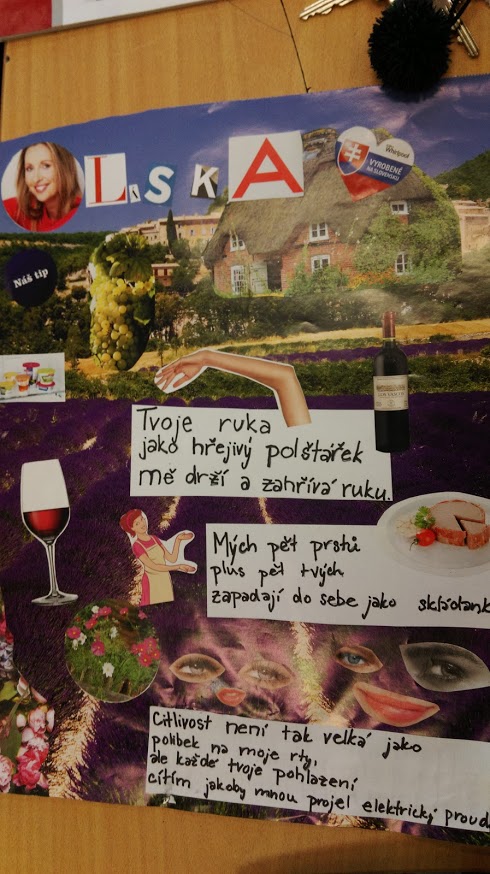 LáSKA
Whirlpool
VYROBENÉ
NA SLOVENSKU
Náš tip
Tvoje ruka
jako hřejivý polštářek
mě drží a zahřívá ruku.
Mých pět prstů
plus pět tvých
zapadají do sebe jako
Citlivost není tak velká jako
polibek na moje rty,
ale každé tvoje pohlazení
cítím jakoby mnou projel elektrický proud